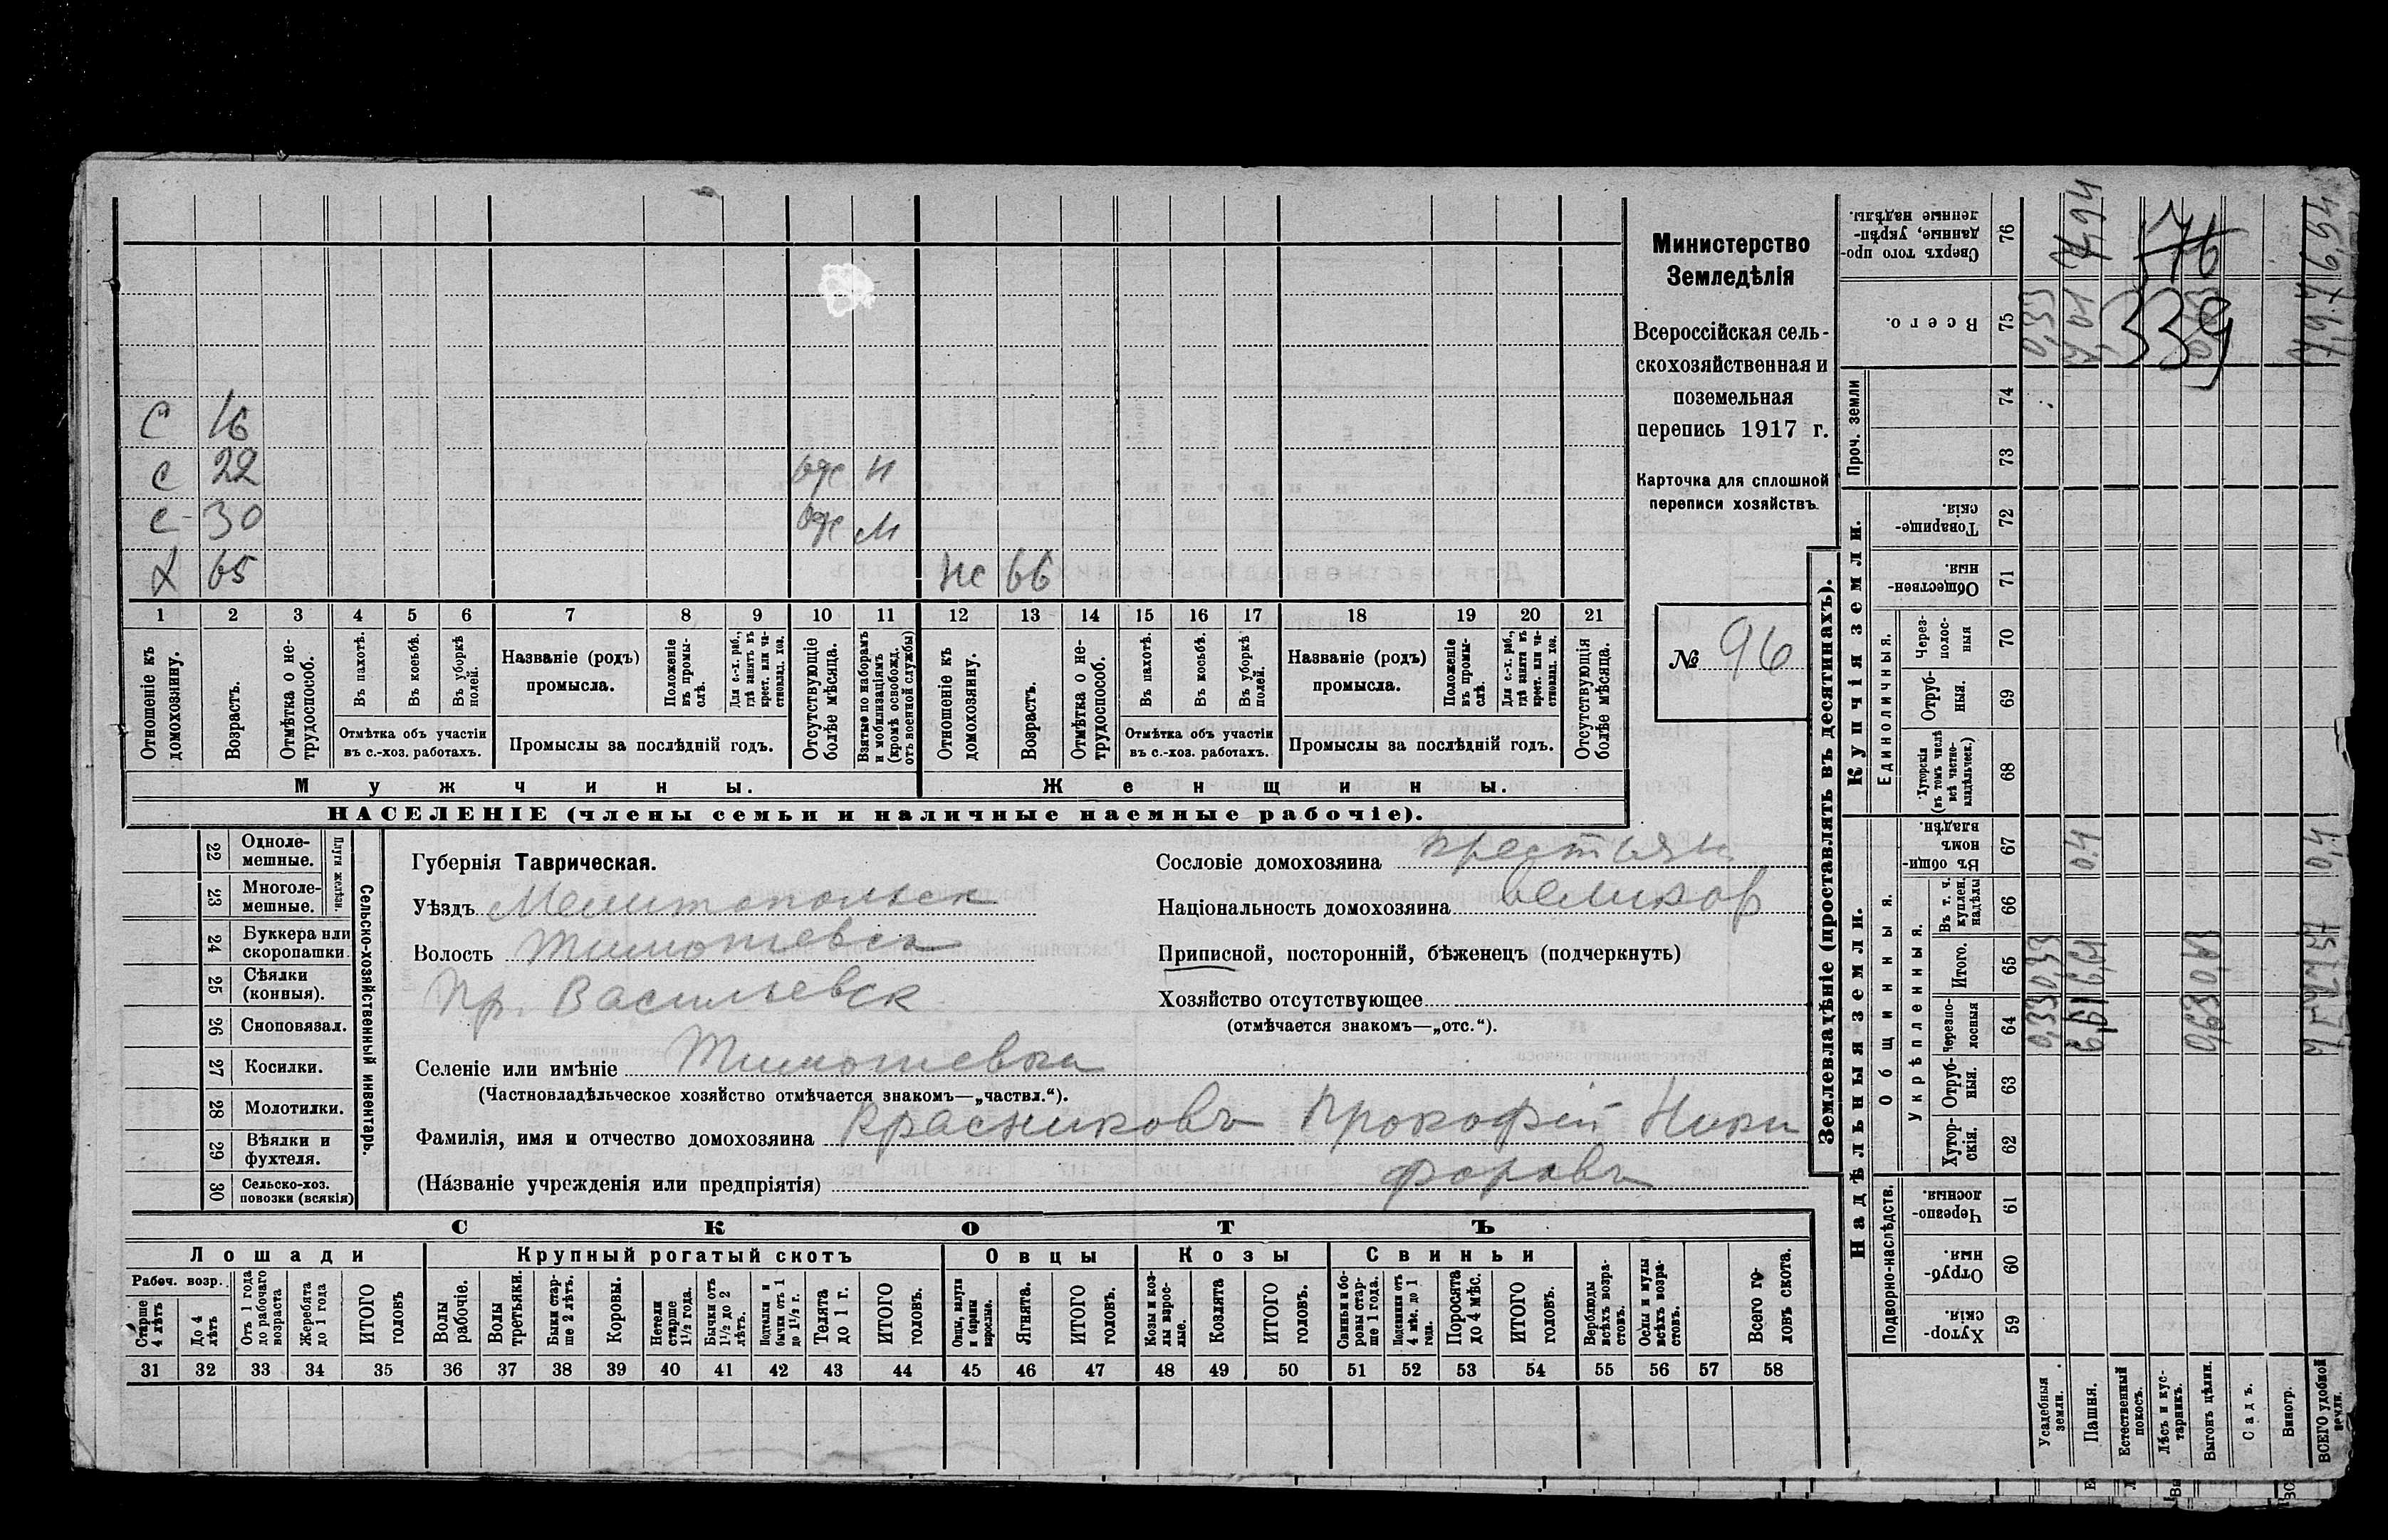 С 16
с 22 où
с 30
Х 65 же 66
1 2 3 4 5 6 7 8 9 10 11 12 13 14 15 16 17 18 19 20 21
Отношеніе къ домохозяину.
Возрастъ.
Отмѣтка о не-
трудоспособ.
Въ пахотѣ.
Въ косьбѣ.
Въ уборкѣ
полей.
Отмѣтка объ участіи
въ с.-хоз. работахъ.
Названіе (родъ)
промысла.
Положеніе
въ промы-
слѣ.
Для с.-х. раб.,
гдѣ занятъ въ
крест. или ча-
стновлад. хоз.
Промыслы за послѣдній годъ.
Отсутствующіе
болѣе мѣсяца.
Взятые по наборамъ
и мобилизаціямъ
(кромѣ освобожд.
отъ военной службы)
Отношеніе къ
домохозяину.
Возрастъ.
Отмѣтка о не-
трудоспособ.
Въ пахотѣ.
Въ косьбѣ.
Въ уборкѣ
полей.
Отмѣтка объ участіи
въ с.-хоз. работахъ.
Названіе (родъ)
промысла.
Положеніе
въ промы-
слѣ.
Для с.-х. раб.,
гдѣ занята въ
крест. или ча-
стновлад. хоз.
Промыслы за послѣдній годъ.
Отсутствующія
болѣе мѣсяца.
Мужчины.
Женщины.
НАСЕЛЕНІЕ (члены семьи и наличные наемные рабочіе).
Министерство
Земледѣлія
Всероссійская сель-
скохозяйственная и
поземельная
перепись 1917 г.
Карточка для сплошной
переписи хозяйствъ.
№ 96
22 Однолемешные.
23 Многолемешные.
Плуги желѣзн.
24 Буккера или
скоропашки
25 Сѣялки
(конныя).
26 Сноповязал.
27 Косилки.
28 Молотилки.
29 Вѣялки и
фухтеля.
30 Сельско-хоз.
повозки (всякія)
Сельско-хозяйственный инвентарь.
Губернія Таврическая.
Уѣздъ Мелитопольск
Волость Тимошевск
Пр. Васильевск
Селеніе или имѣніе Тимошевка
(Частновладѣльческое хозяйство отмѣчается знакомъ—„частвл.“).
Фамилія, имя и отчество домохозяина Красниковъ Прокофій Ники
форовъ
(Названіе учрежденія или предпріятія)
Сословіе домохозяина крестьян
Національность домохозяина великор
Приписной, посторонній, бѣженецъ (подчеркнуть)
Хозяйство отсутствующее
(отмѣчается знакомъ—„отс.“).
СКОТЪ
Лошади
Крупный рогатый скотъ
Овцы
Козы
Свиньи
Рабоч. возр.
Старше
4 лѣтъ
До 4
лѣтъ
Отъ 1 года
до рабочаго
возраста
Жеребята
до 1 года
ИТОГО
головъ
Волы
рабочіе.
Волы
третьяки.
Быки стар-
ше 2 лѣтъ.
Коровы.
Нетели
старше
1½ года.
Бычки отъ
1½ до 2
лѣтъ.
Подтелки и
бычки отъ 1
до 1½ г.
Телята
до 1 г.
ИТОГО
головъ.
Овцы, валухи
и бараны
взрослые.
Ягнята.
ИТОГО
головъ.
Козы и коз-
лы взрос-
лые.
Козлята
ИТОГО
головъ.
Свиньи и бо-
ровы стар-
ше 1 года.
Подсвинки отъ
4 мѣс. до 1
года.
Поросята
до 4 мѣс.
ИТОГО
головъ.
Верблюды
всѣхъ возра-
стовъ.
Ослы и мулы
всѣхъ возра-
стовъ.
Всего го-
ловъ скота.
31 32 33 34 35 36 37 38 39 40 41 42 43 44 45 46 47 48 49 50 51 52 53 54 55 56 57 58
Землевладѣніе (проставлять въ десятинахъ).
Надѣльныя земли.
Купчія земли.
Проч. земли
Подворно-наслѣдств.
Общинныя.
Укрѣпленныя.
Единоличныя.
Хутор-
скія. 59
Отруб-
ныя. 60
Черезпо-
лосныя. 61
Хутор-
скія. 62
Отруб-
ныя. 63
Черезпо-
лосныя 64
Итого. 65
Въ т. ч.
куплен.
надѣлы 66
Въ общин-
номъ
владѣн. 67
Хуторскія
(въ томъ числѣ
всѣ частно-
владѣльческ.) 68
Отруб-
ныя. 69
Через-
полос-
ныя 70
Обществен-
ныя. 71
Товарище-
скія. 72
73
74
Всего. 75
Сверхъ того про-
данные, укрѣп-
ленные надѣлы. 76
Усадебныя
земли. 0,33 0,33 0,33
Пашня. 6,61 6,61 0.4 7,01
Естественный
покосъ.
Лѣсъ и кус-
тарникъ.
Выгонъ цѣлин. 0,63 0,63
Садъ.
Виногр.
ВСЕГО удобной
земли. 0,4
176
339